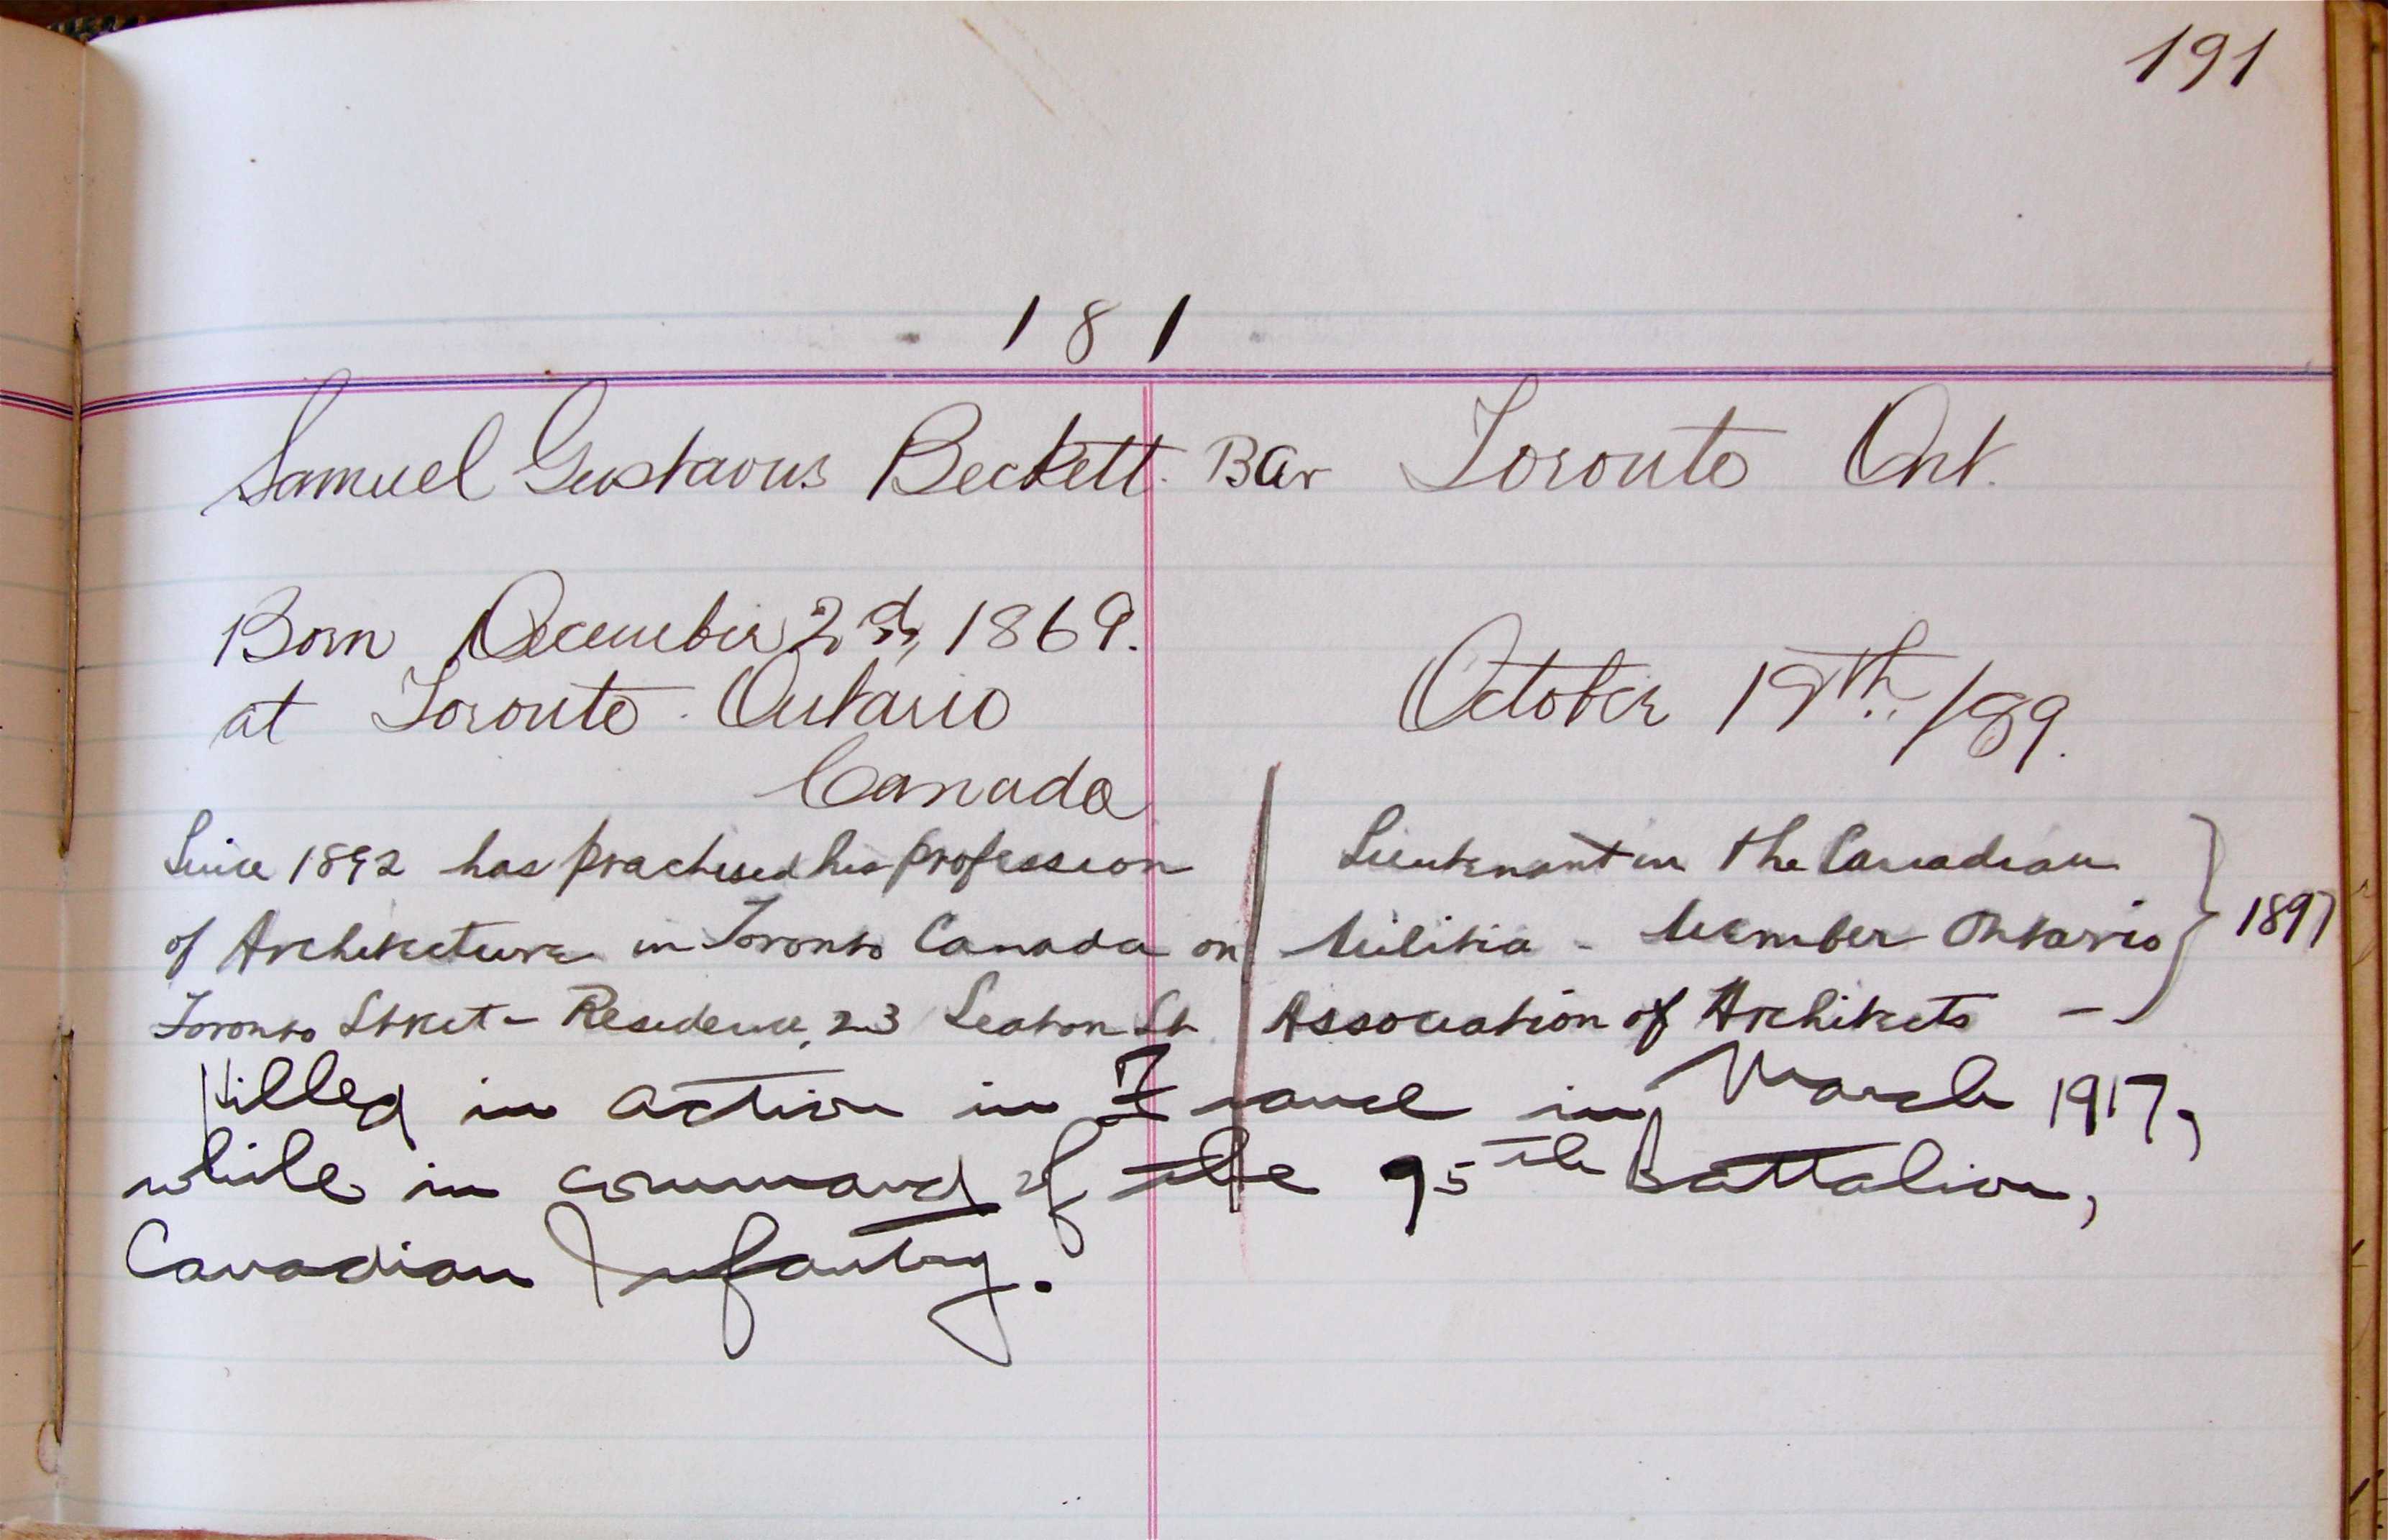 191
181
Samuel Gustavus Beckett. BAr Toronto Ont.
Born December 2nd, 1869.
at Toronto. Ontario
Canada
October 19th, /89.
Since 1892 has practised his profession
of Architecture in Toronto Canada on
Toronto Street - Residence, 23 Seaton St.
Lieutenant in the Canadian
Militia - Member Ontario
Association of Architects -
1897
Killed in action in France in March 1917,
while in command of the 95th battalion,
Canadian Infantry.